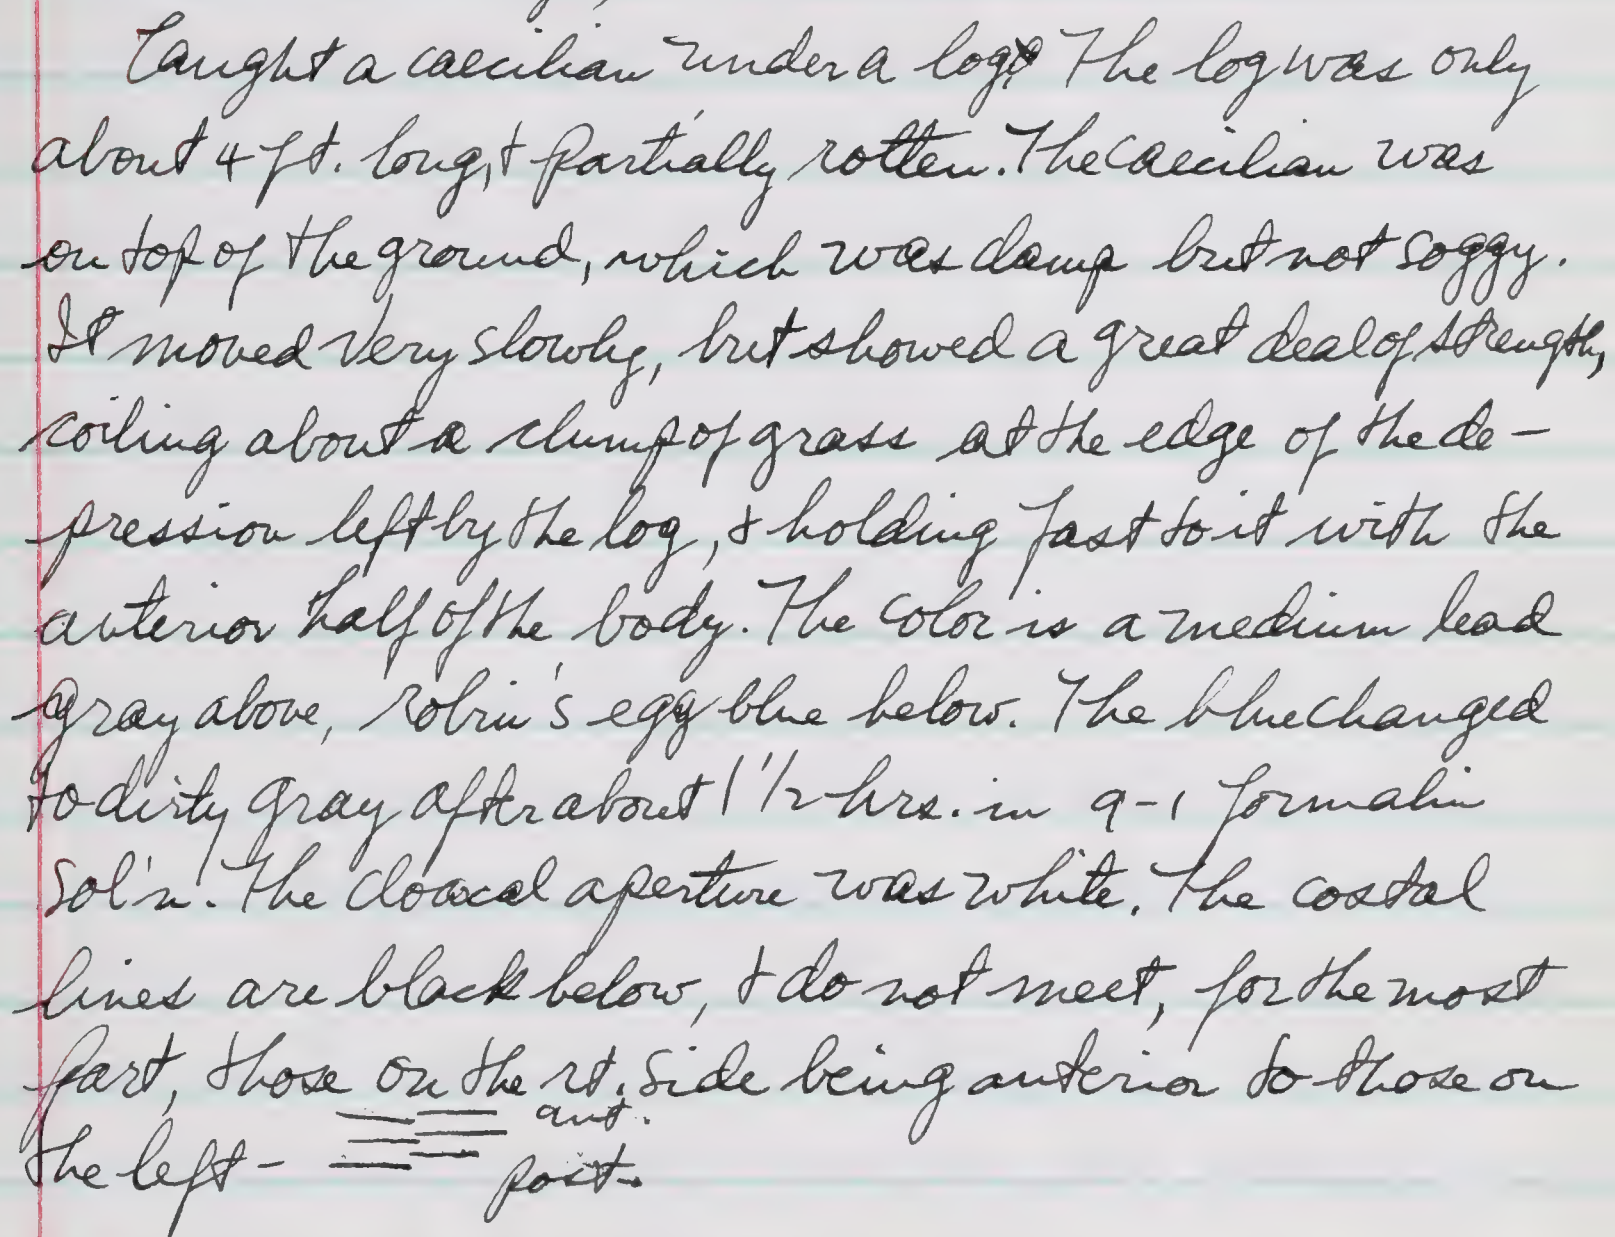 Caught a caecilian under a log. The log was only
about 4 ft. long, & partially rotten. The caecilian was
on top of the ground, which was damp but not soggy.
It moved very slowly, but showed a great deal of strength,
coiling about a clump of grass at the edge of the de-
pression left by the log, & holding fast to it with the
anterior half of the body. The color is a medium lead
gray above, robin's egg blue below. The blue changed
to dirty gray after about 1 1/2 hrs. in 9-1 formalin
sol'n. The cloacal aperture was white. The costal
lines are black below, & do not meet, for the most
part, those on the rt. side being anterior to those on
the left - ant.
post.